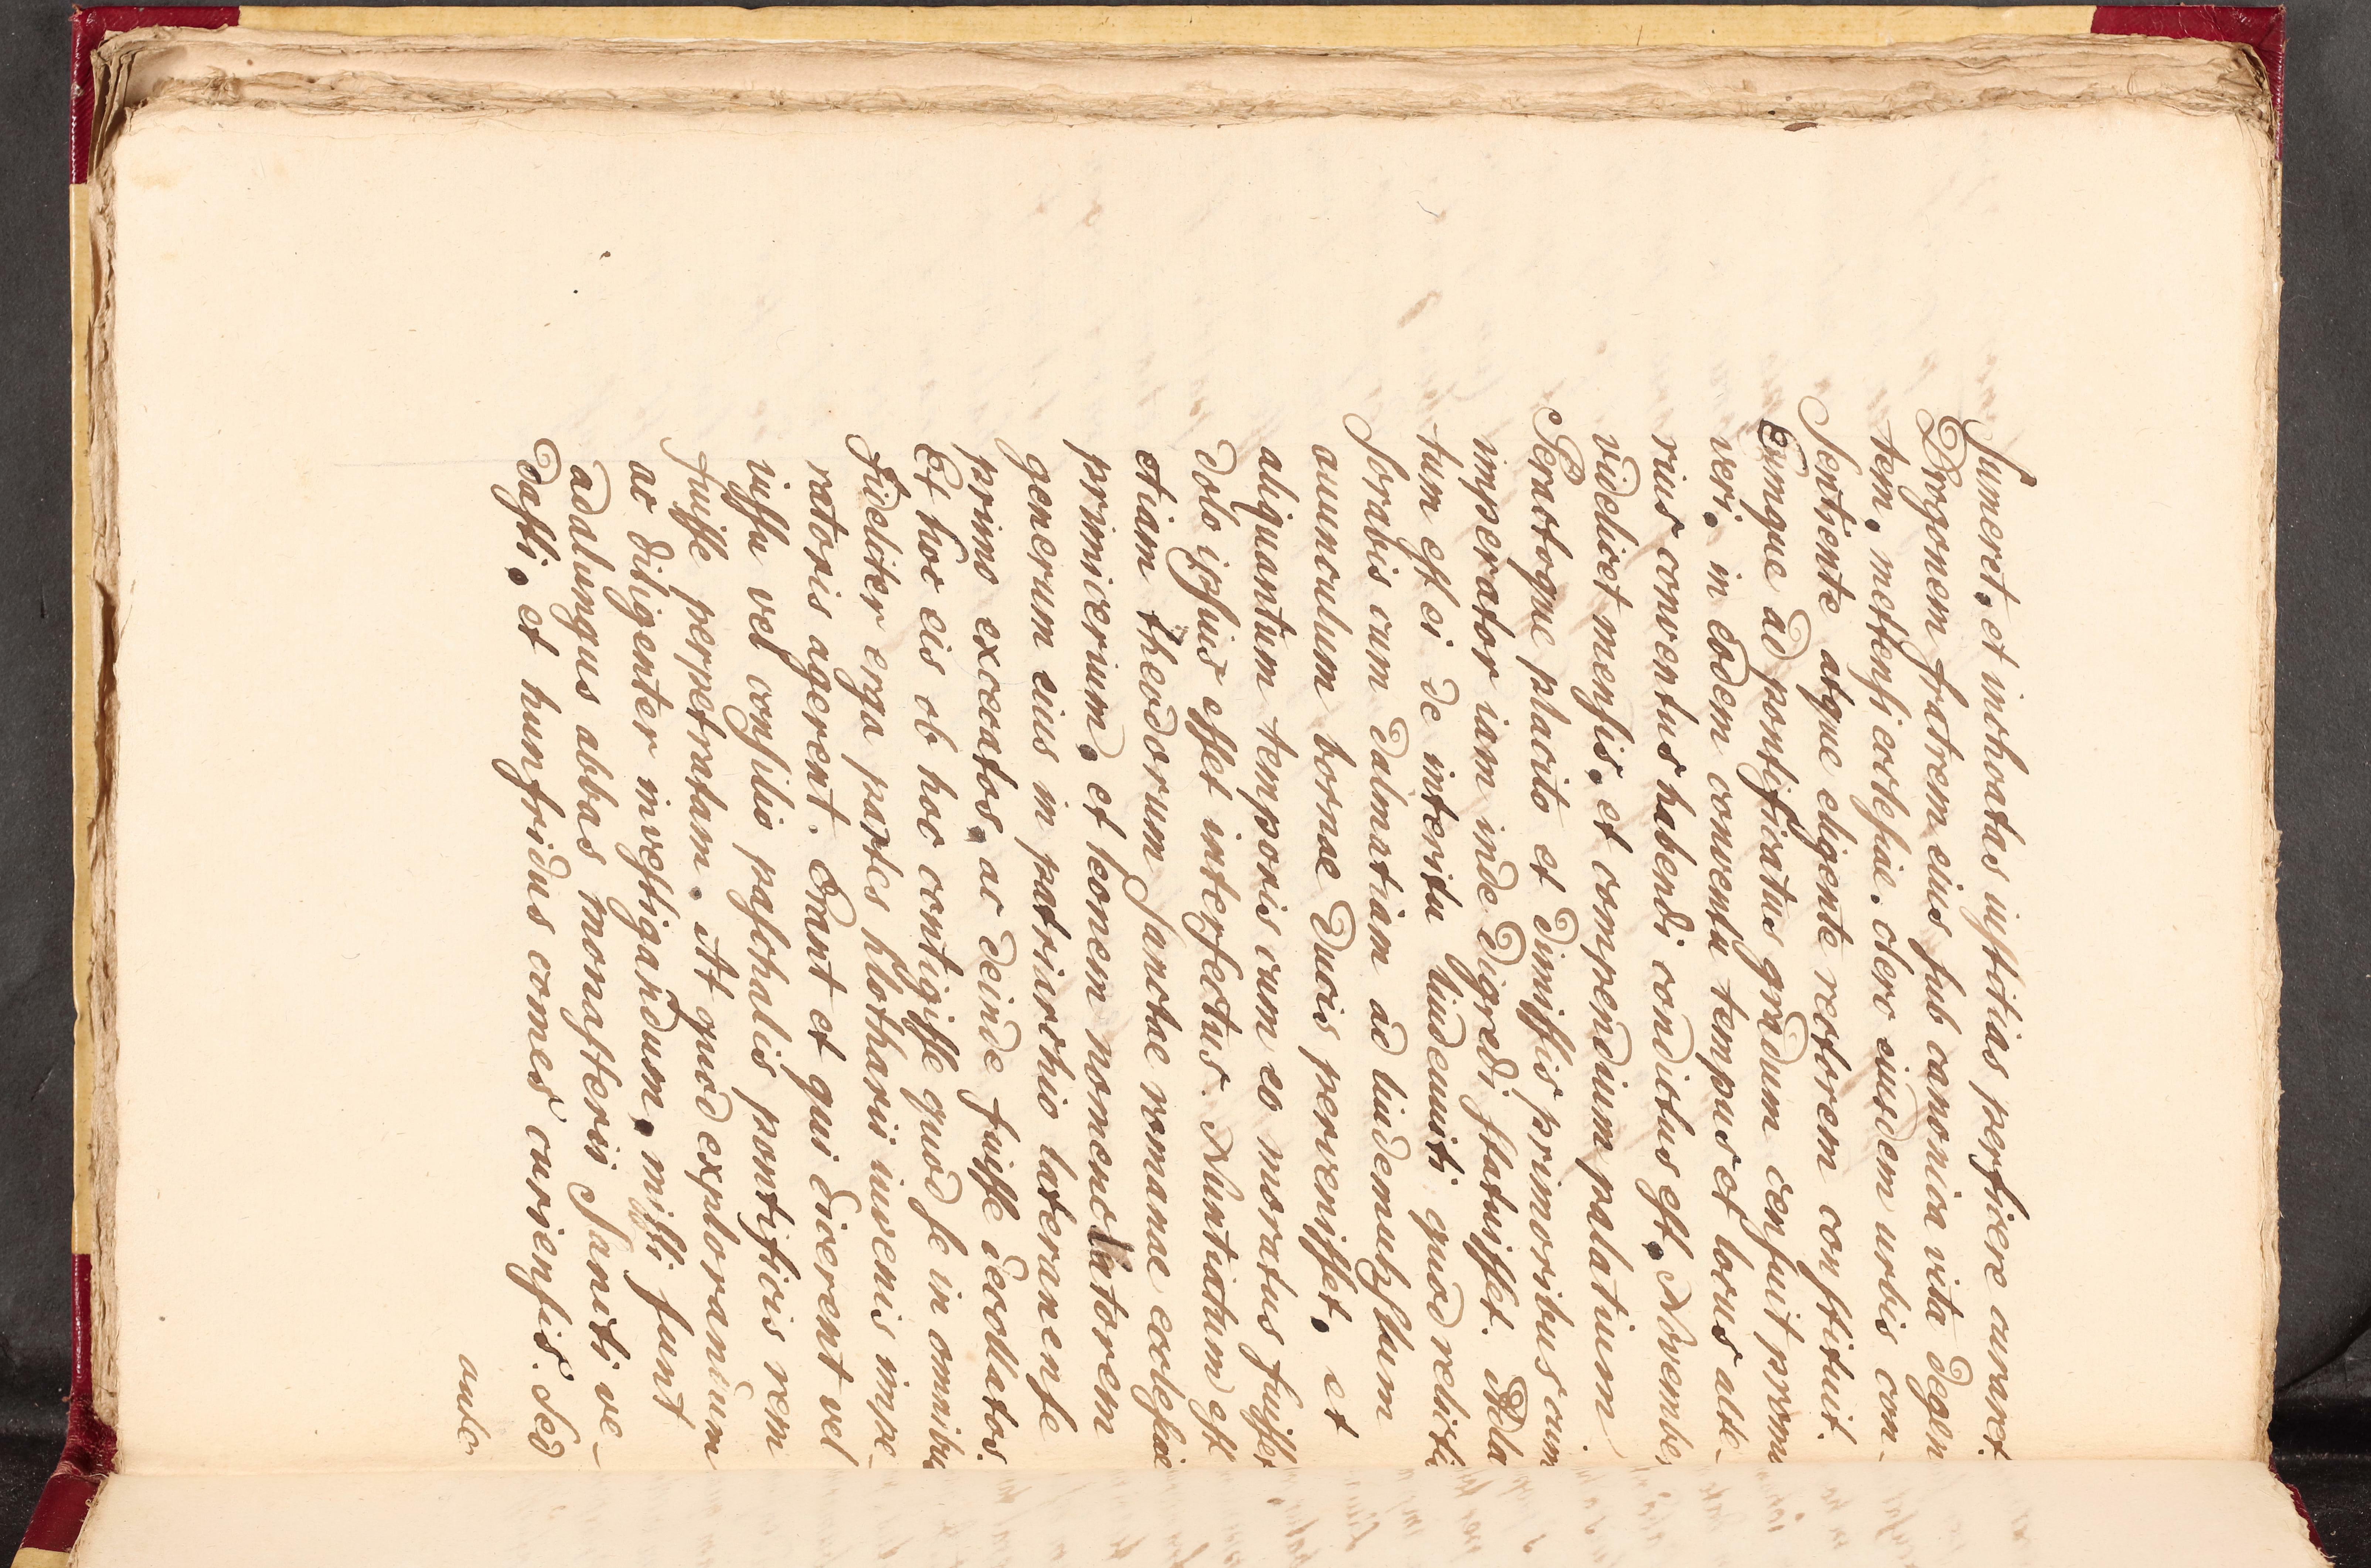 Sumeret, et inchoatas iustitias perficere curaret.
Drogonem fratrem eius sub canonica vita degen
tem, mettensi ecclesiae. clero eiusdem urbis con-
sentiente atque eligente rectorem constituit.
Eumque ad pontificatus gradum censuit promo
veri. in eodem conventu tempus et locus alte-
rius conventus habendi condictus est, Novembe
videlicet mensis, et compendium palatium.
Peractoque placito et dimissis primoribus cum
imperator iam inde digredi statuisset. Adla
tum est ei de interitu liudeuuiti quod relicti
sorabis cum dalmatiam ad liudemuhslum
auunculum bornae ducis pervenisset, et
aliquantum temporis cum eo moratus fuisset
dolo ipsius esset interfectus. Nuntiatum est
etiam theodorum Sanctae romanae ecclesiae
primicerium, et leonem nomenclatorem
generum eius in patriarchio lateranense
primo excecatos, ac deinde fuisse decollatos.
Et hoc eis ob hoc contigisse quod se in omnibu
fideliter erga partes hlotharii iuvenis impe-
ratoris agerent. Erant et qui dicerent vel
iussu vel consilio paschalis pontificis rem
fuisse perpetratam. At quod explorandum
ac diligenter investigandum, missi sunt
adalungus abbas monasterii Sancti ve-
dasti, et hunfridus comes curiensis. Sed